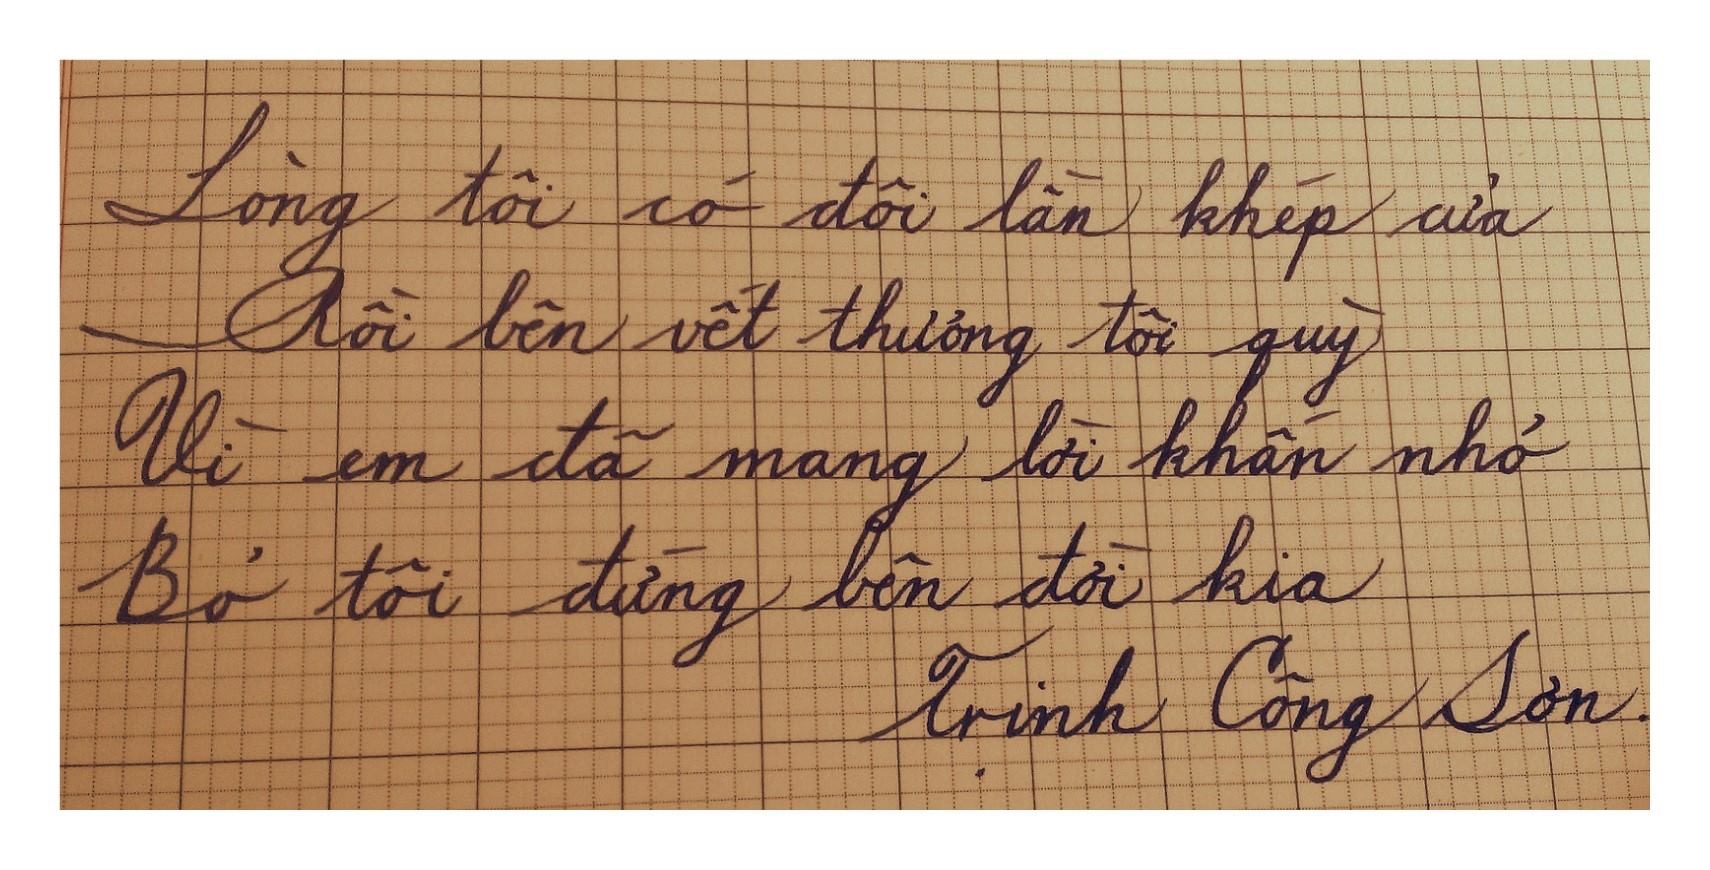 Lòng tôi có đôi lần khép cửa
Rồi bên vết thương tôi quỳ
Vì em đã mang lời khấn nhỏ
Bỏ tôi đứng bên đời kia
Trịnh Công Sơn.